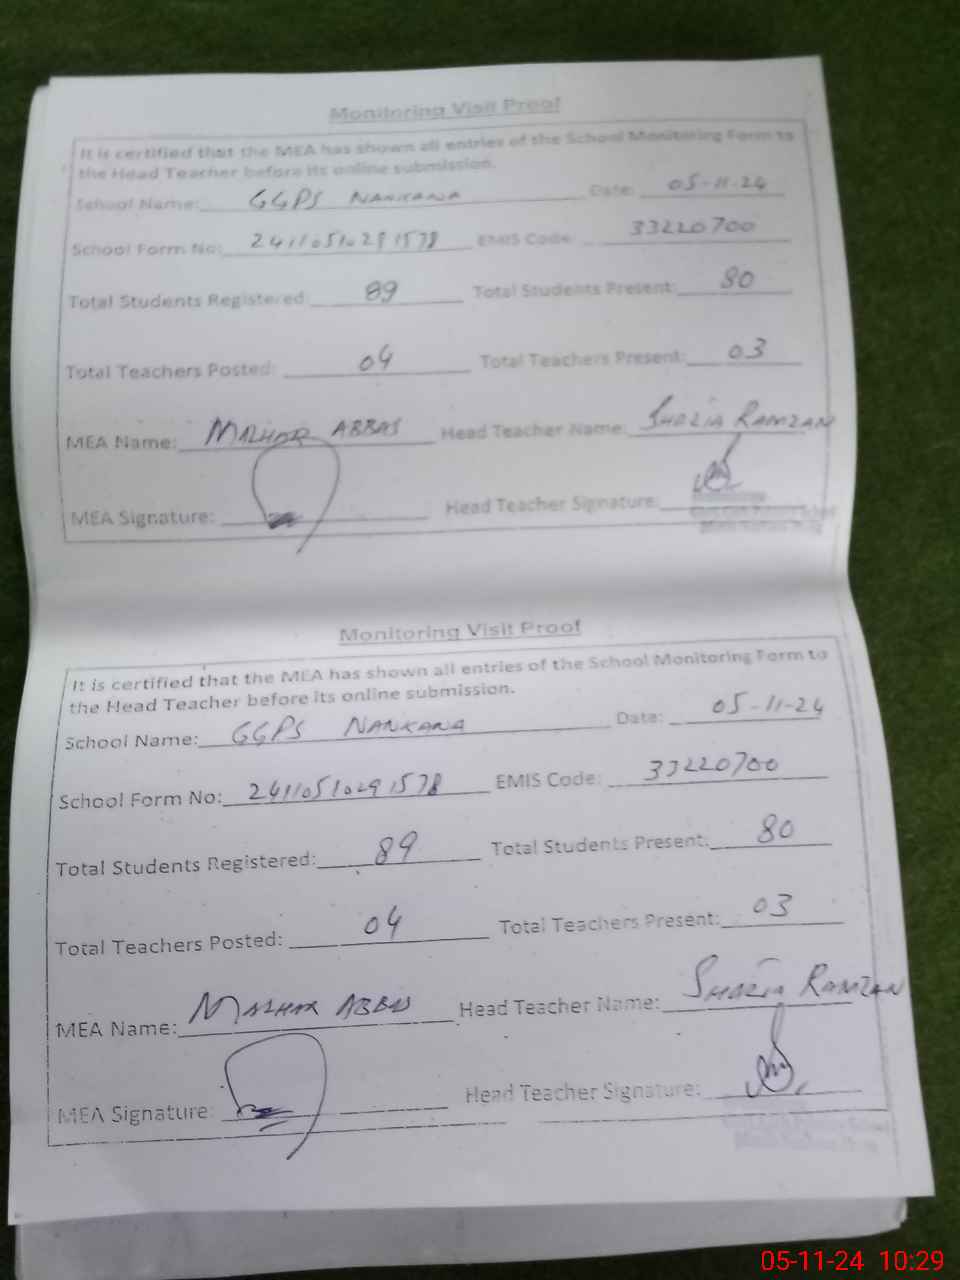 Monitoring Visit Proof
It is certified that the MEA has shown all entries of the School Monitoring Form to
the Head Teacher before its online submission.
School Name: GGPS NANKANA Date: 05-11-24
School Form No: 2411051029 1578 EMIS Code: 33220700
Total Students Registered: 89 Total Students Present: 80
Total Teachers Posted: 04 Total Teachers Present: 03
MEA Name: MAZHAR ABBAS Head Teacher Name: SHAZIA RAMZAN
MEA Signature: Head Teacher Signature:
Monitoring Visit Proof
It is certified that the MEA has shown all entries of the School Monitoring Form to
the Head Teacher before its online submission.
School Name: GGPS NANKANA Date: 05-11-24
School Form No: 2411051029 1578 EMIS Code: 33220700
Total Students Registered: 89 Total Students Present: 80
Total Teachers Posted: 04 Total Teachers Present: 03
MEA Name: MAZHAR ABBAS Head Teacher Name: SHAZIA RAMZAN
MEA Signature: Head Teacher Signature:
05-11-24 10:29